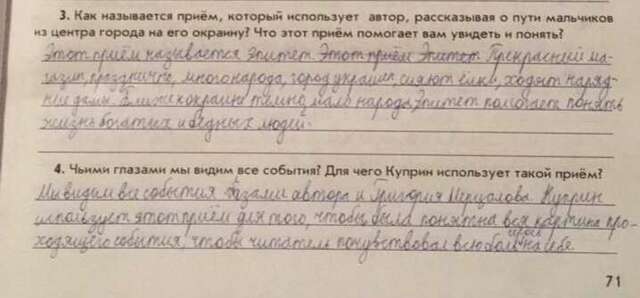 3. Как называется приём, который использует автор, рассказывая о пути мальчиков
из центра города на его окраину? Что этот приём помогает вам увидеть и понять?
Этот приём называется Эпитет. Этот приём Эпитет. Прекрасней ма-
газин, празднично, много народа, город украшен, сияют ёлки, ходят наряд-
ние дамы. Ближе к окраине темно, мало народа, Эпитет помогает понять
жизнь богатых и бедных людей.
4. Чьими глазами мы видим все события? Для чего Куприн использует такой приём?
Мы видим все события глазами автора и Григория Мерцалова. Куприн
использует этот приём для того, чтобы была понятна вся картина про-
ходящего события, чтобы читатель почувствовал всю боль героя на себе.
71